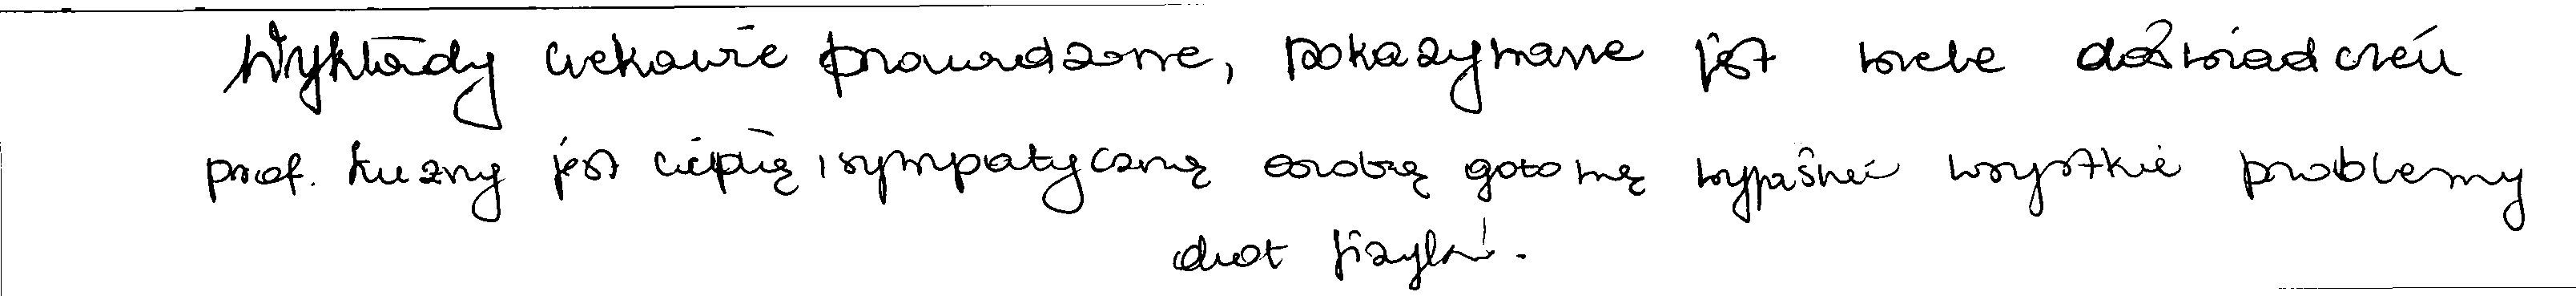 Wykłady ciekawie prowadzone, pokazywane jest wiele doświadczeń
prof. Kuzny jest ciepłą i sympatyczną osobą gotową wyjaśnić wszystkie problemy
dot fizyki.